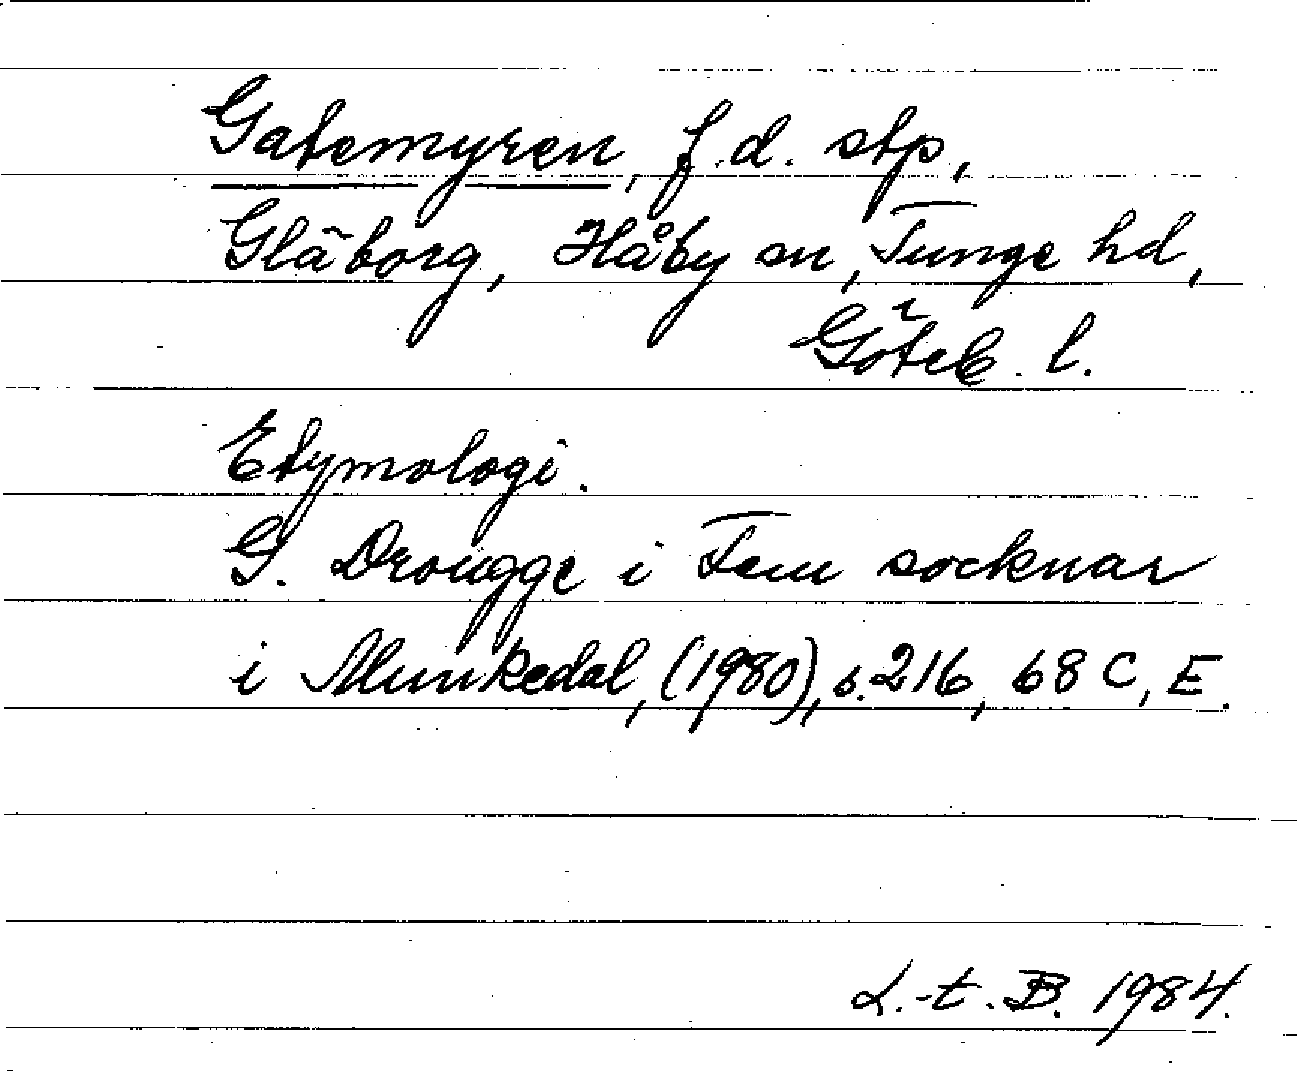 Gatemyren, f.d. stp,
Gläborg, Håby sn, Tunge hd,
Göteb. l.
Etymologi.
G. Drougge i Fem socknar
i Munkedal, (1980), s. 216, 68 C, E.
L.-t. B. 1984.